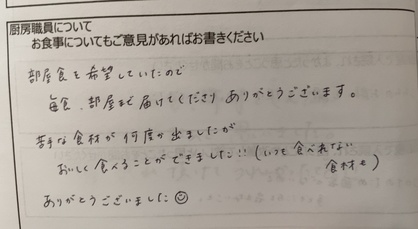 厨房職員について
お食事についてもご意見があればお書きください
部屋食を希望していたので
毎食、部屋まで届けてくださりありがとうございます。
苦手な食材が何度か出ましたが
おいしく食べることができました!!(いつも食べれない
食材も)
ありがとうございました☺